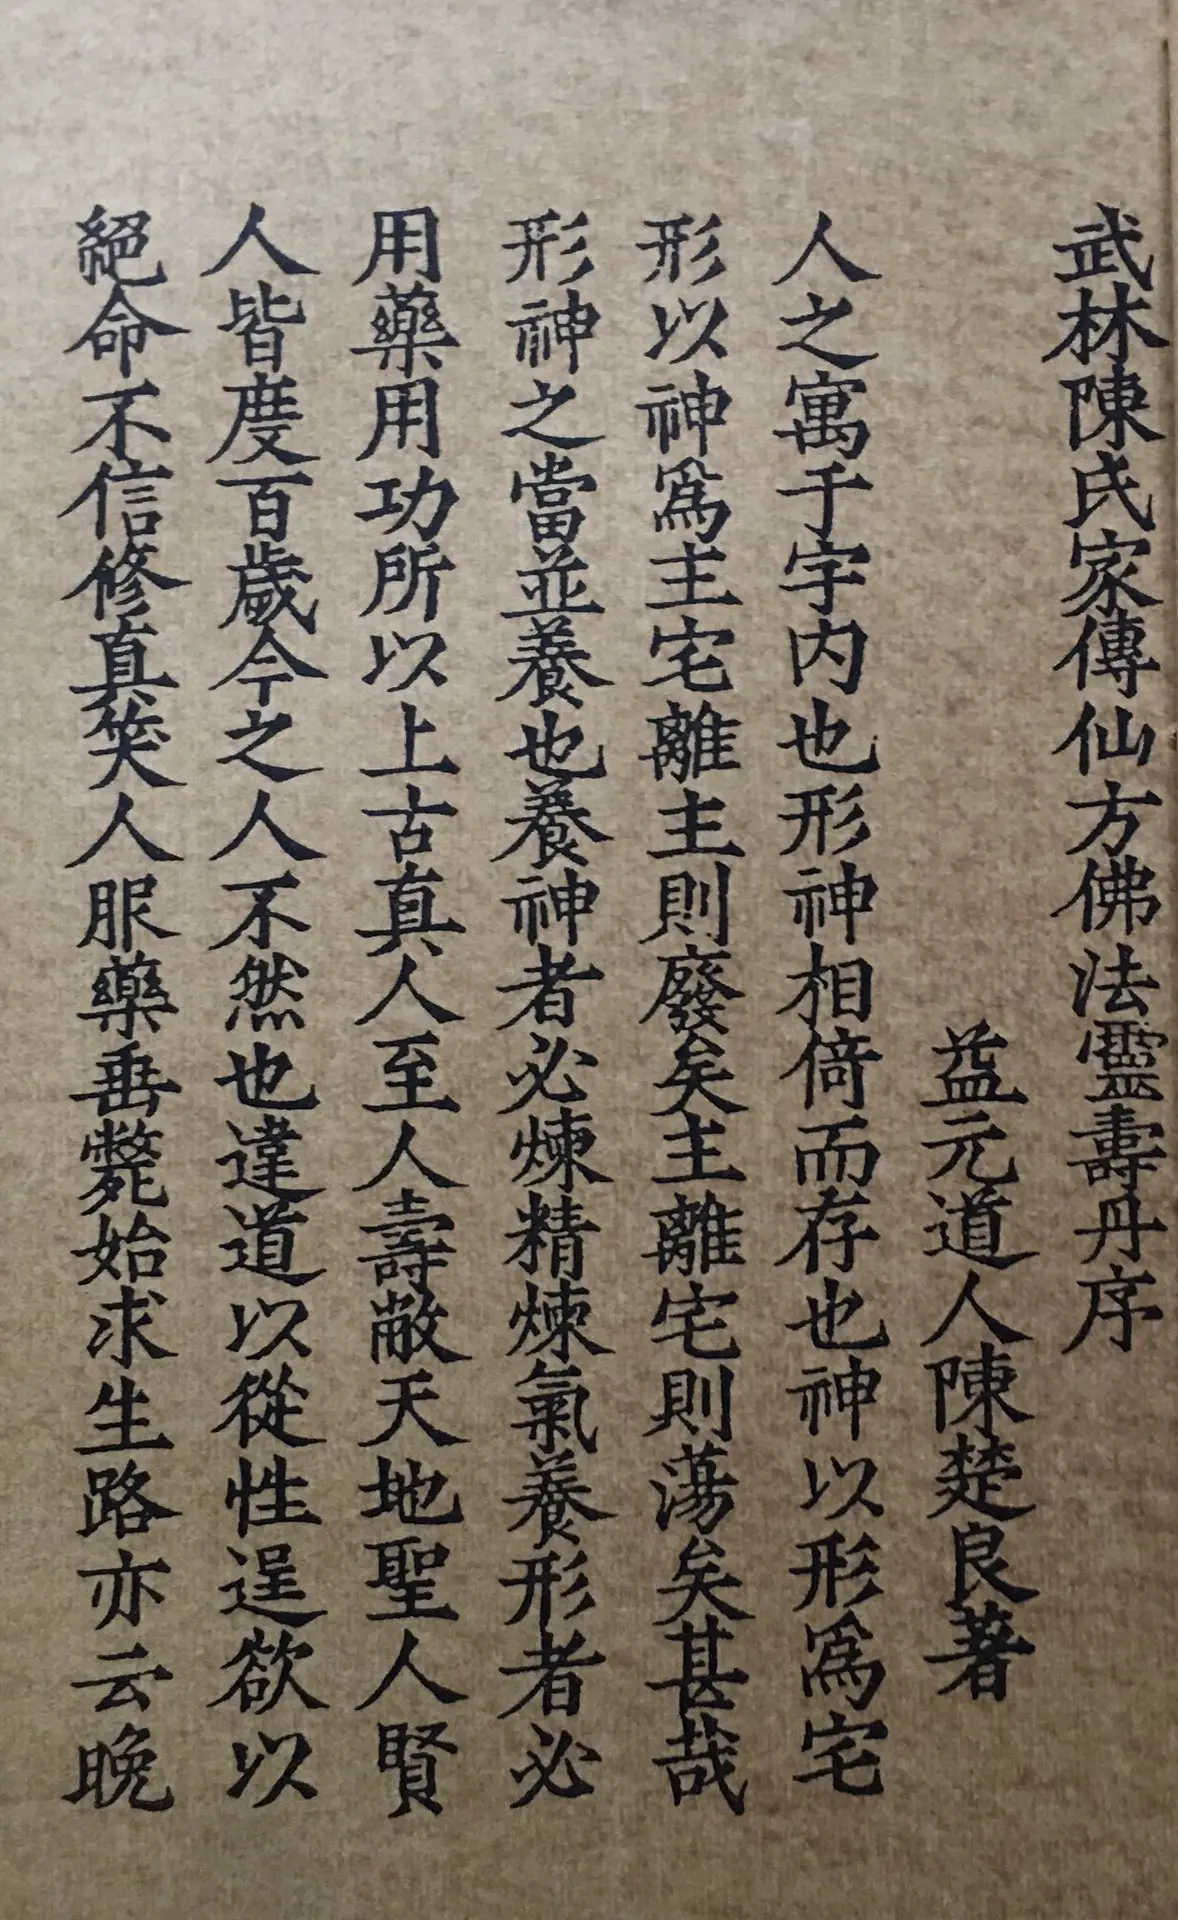 武林陳氏家傳仙方佛法靈壽丹序
益元道人陳楚良著
人之寓于宇内也形神相倚而存也神以形爲宅
形以神爲主宅離主則廢矣主離宅則蕩矣甚哉
形神之當並養也養神者必煉精煉氣養形者必
用藥用功所以上古真人至人壽敝天地聖人賢
人皆度百歲今之人不然也違道以從性逞欲以
絕命不信修真笑人服藥垂斃始求生路亦云晚